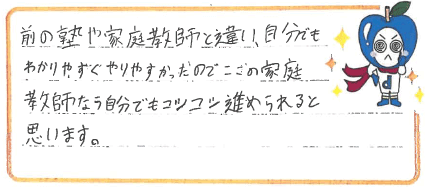 前の塾や家庭教師と違い、自分でも
わかりやすくやりやすかったのでここの家庭
教師なら自分でもコツコツ進められると
思います。